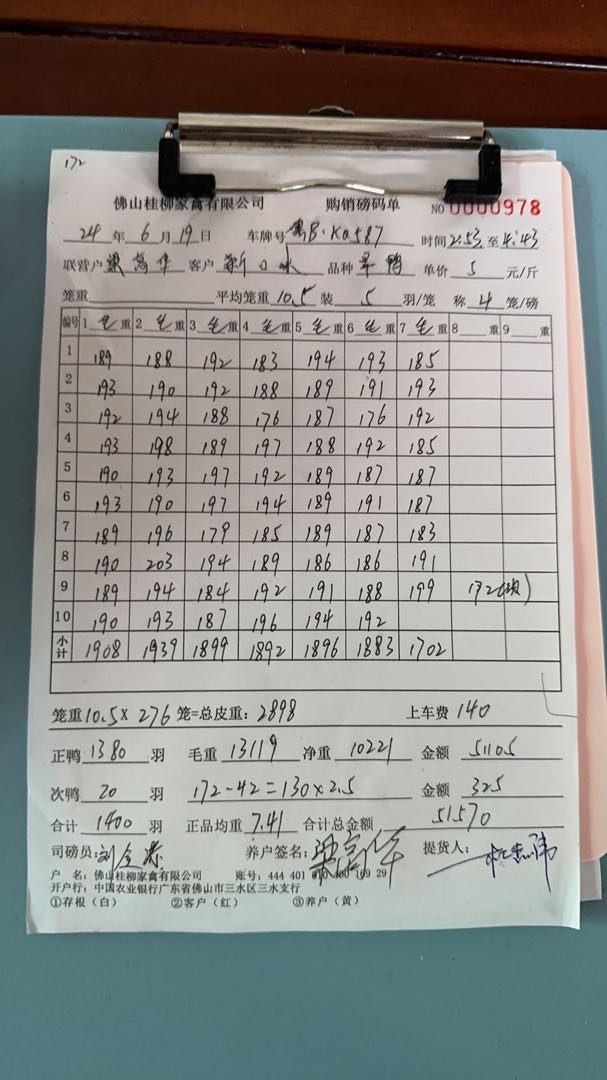 172
佛山桂柳家禽有限公司 购销磅码单 NO 0000978
24 年 6 月 19 日 车牌号 粤B·K0587 时间 2:53 至 4:43
联营户 梁富华 客户 新口味 品种 旱鸭 单价 5 元/斤
笼重 平均笼重 10.5 装 5 羽/笼 称 4 笼/磅
编号 1 毛 重 2 毛 重 3 毛 重 4 毛 重 5 毛 重 6 毛 重 7 毛 重 8 重 9 重
1 189 188 192 183 194 193 185
2 193 190 192 188 189 191 193
3 192 194 188 176 187 176 192
4 193 198 189 197 188 192 185
5 190 193 197 192 189 187 187
6 193 190 197 194 189 191 187
7 189 196 179 185 189 187 183
8 190 203 194 189 186 186 191
9 189 194 184 192 191 188 199 172
10 190 193 187 196 194 192
小计 1908 1939 1899 1892 1896 1883 1702
笼重 10.5 x 276 笼=总皮重: 2898 上车费 140
正鸭 1380 羽 毛重 13119 净重 10221 金额 51105
次鸭 20 羽 172-42=130x2.5 金额 325
合计 1400 羽 正品均重 7.41 合计总金额 51570
司磅员: 养户签名: 梁富华 提货人:
户 名: 佛山桂柳家禽有限公司 账号: 444 401 29
开户行: 中国农业银行广东省佛山市三水区三水支行
①存根（白） ②客户（红） ③养户（黄）